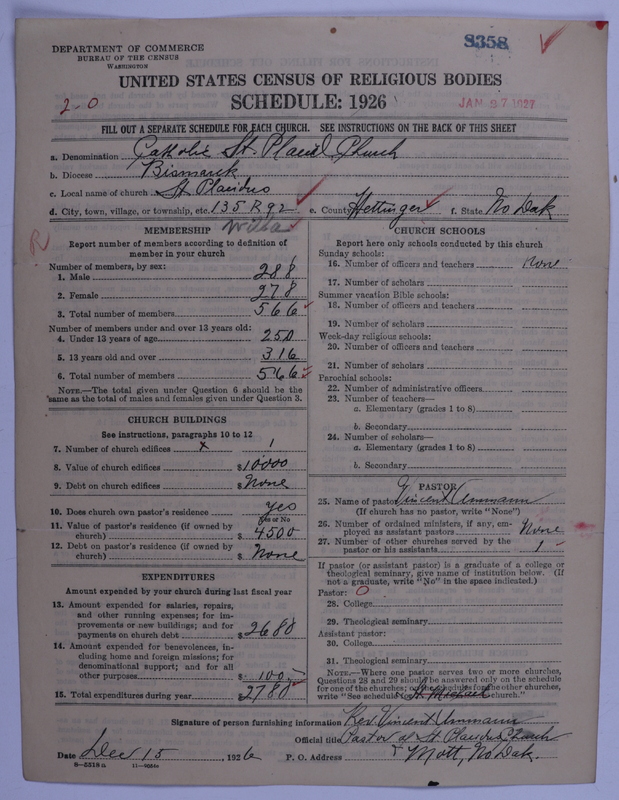 8358
DEPARTMENT OF COMMERCE
BUREAU OF THE CENSUS
WASHINGTON
UNITED STATES CENSUS OF RELIGIOUS BODIES
SCHEDULE: 1926
2-0
JAN 27 1927
FILL OUT A SEPARATE SCHEDULE FOR EACH CHURCH. SEE INSTRUCTIONS ON THE BACK OF THIS SHEET
a. Denomination Catholic St. Placid Church
b. Diocese Bismarck
c. Local name of church St Placidus
d. City, town, village, or township, etc. 135 R 92 e. County Hettinger f. State No Dak
R
MEMBERSHIP
Report number of members according to definition of
member in your church
Number of members, by sex:
1. Male 288
2. Female 278
3. Total number of members 566
Number of members under and over 13 years old:
4. Under 13 years of age 250
5. 13 years old and over 316
6. Total number of members 566
NOTE.—The total given under Question 6 should be the
same as the total of males and females given under Question 3.
CHURCH BUILDINGS
See instructions, paragraphs 10 to 12
7. Number of church edifices x 1
8. Value of church edifices $10000
9. Debt on church edifices $None
10. Does church own pastor's residence yes
Yes or No
11. Value of pastor's residence (if owned by
church) $4500
12. Debt on pastor's residence (if owned by
church) $None
EXPENDITURES
Amount expended by your church during last fiscal year
13. Amount expended for salaries, repairs,
and other running expenses; for im-
provements or new buildings; and for
payments on church debt $2680
14. Amount expended for benevolences, in-
cluding home and foreign missions; for
denominational support; and for all
other purposes $100
15. Total expenditures during year $2780
CHURCH SCHOOLS
Report here only schools conducted by this church
Sunday schools:
16. Number of officers and teachers none
17. Number of scholars
Summer vacation Bible schools:
18. Number of officers and teachers
19. Number of scholars
Week-day religious schools:
20. Number of officers and teachers
21. Number of scholars
Parochial schools:
22. Number of administrative officers
23. Number of teachers—
a. Elementary (grades 1 to 8)
b. Secondary
24. Number of scholars—
a. Elementary (grades 1 to 8)
b. Secondary
PASTOR
25. Name of pastor Vincent Ammann
(If church has no pastor, write "None")
26. Number of ordained ministers, if any, em-
ployed as assistant pastors None
27. Number of other churches served by the
pastor or his assistants 1
If pastor (or assistant pastor) is a graduate of a college or
theological seminary, give name of institution below. (If
not a graduate, write "No" in the space indicated.)
Pastor: O
28. College
29. Theological seminary
Assistant pastor:
30. College
31. Theological seminary
NOTE.—Where one pastor serves two or more churches,
Questions 28 and 29 should be answered only on the schedule
for one of the churches; on the schedules for the other churches,
write "See schedule for St. Michael church."
Signature of person furnishing information Rev. Vincent Ammann
Official title Pastor at St. Placidus Church
Date Dec 15, 1926 P. O. Address Mott, No Dak.
8—5518a 11—9554a